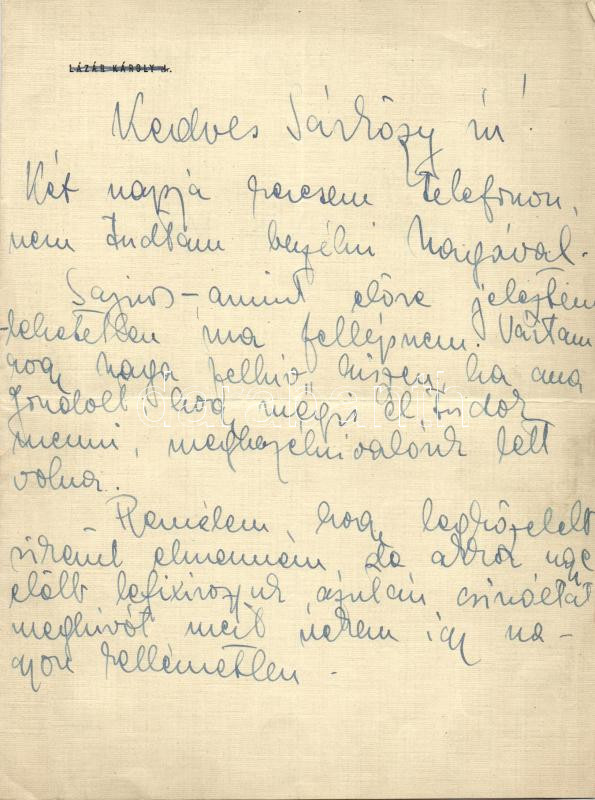 LÁZÁR KÁROLY J.
Kedves Sárközy úr!
Két napja keresem telefonon,
nem tudtam beszélni magával.
Sajnos - amint előre jeleztem
- lehetetlen ma fellépnem. Vártam
hogy maga felhív hiszen ha arra
gondolt, hogy mégis el tudok
menni, megbeszélnivalónk lett
volna.
Remélem, hogy legközelebb
sikerül elmennem, de akkor ugye
előbb lefixirozzuk azután csináltat
meghívót mert nekem így na-
gyon kellemetlen.